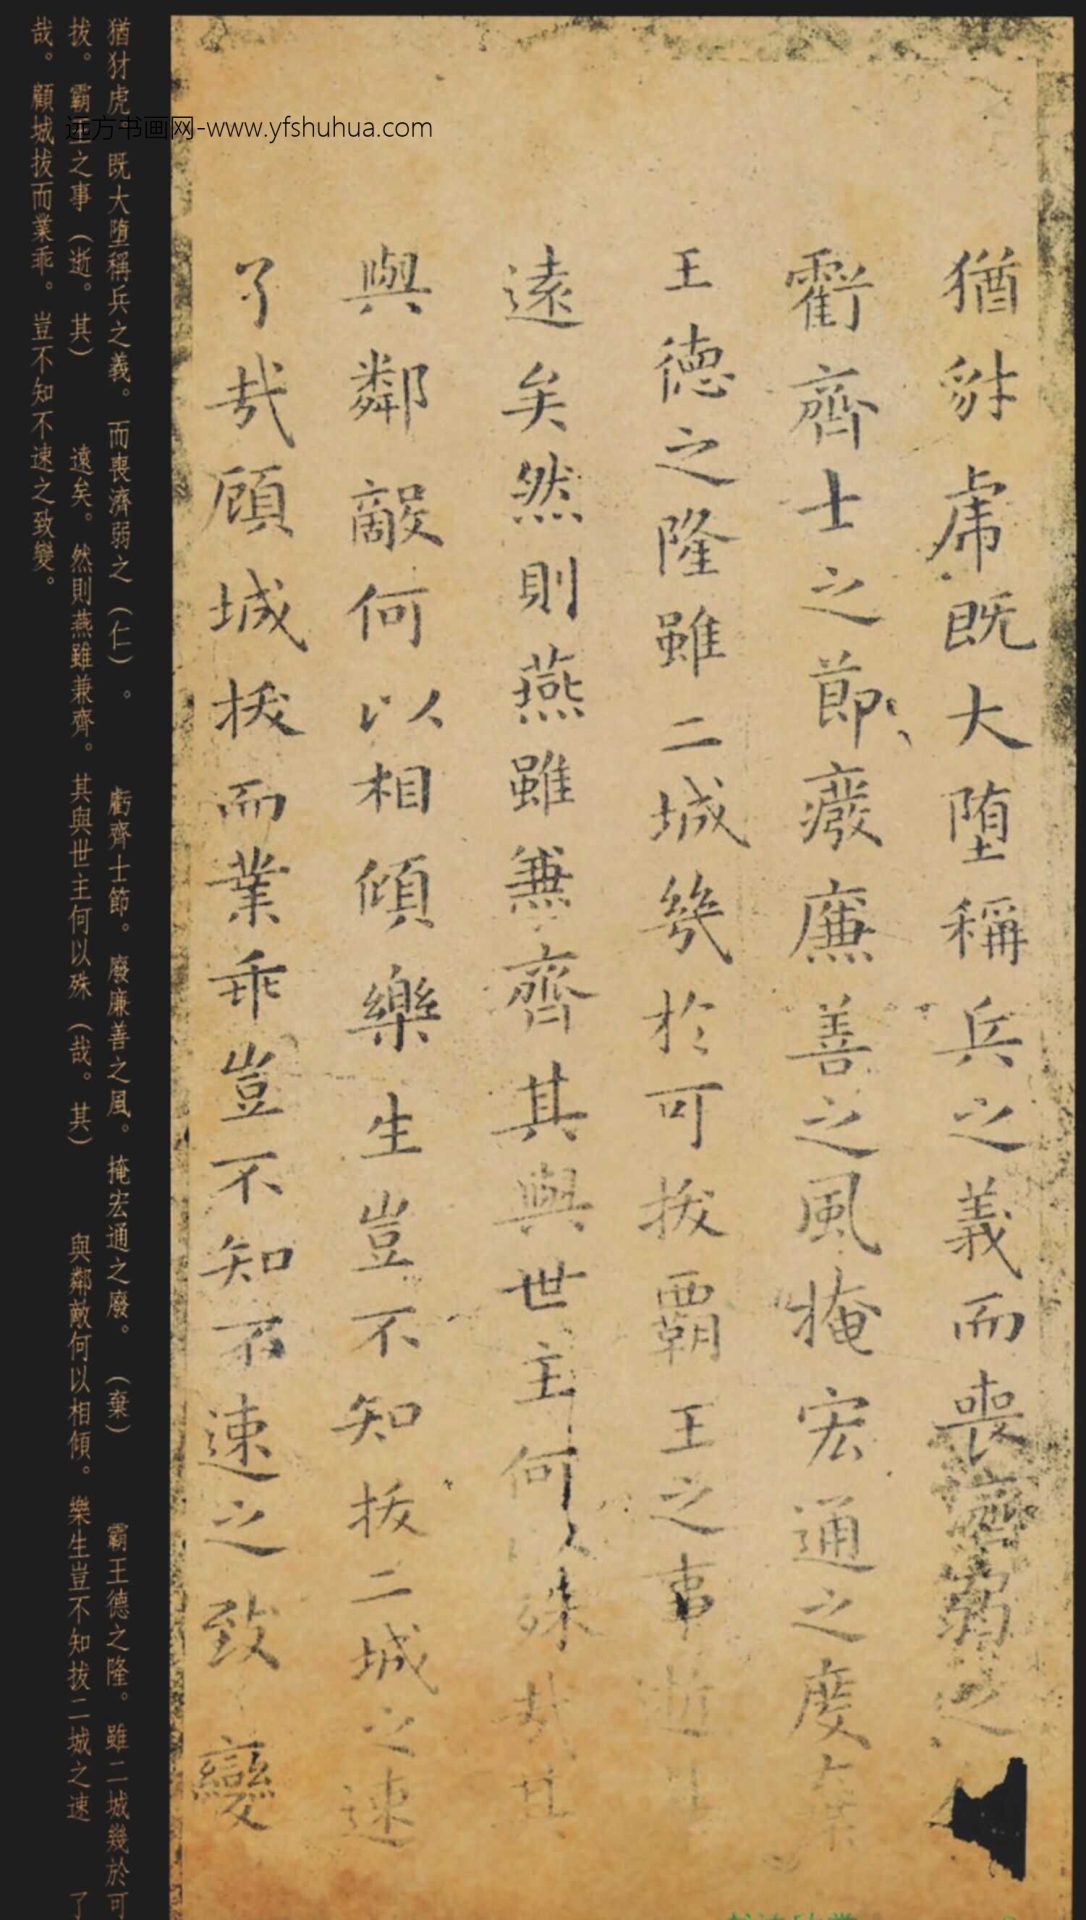 猶豺虎既大堕稱兵之義而喪濟弱之
虧齊士之節廢廉善之風掩宏通之度棄
王德之隆雖二城幾於可拔霸王之事逝
遠矣然則燕雖兼齊其與世主何以殊哉其
與鄰敵何以相傾樂生豈不知拔二城之速
了哉顧城拔而業乖豈不知不速之致變
猶豺虎。既大堕稱兵之義。而喪濟弱之（仁）。 虧齊士節。廢廉善之風。掩宏通之廢。（棄） 霸王德之隆。雖二城幾於可
拔。霸王之事（逝。其） 遠矣。然則燕雖兼齊。其與世主何以殊（哉。其） 與鄰敵何以相傾。樂生豈不知拔二城之速 了
哉。顧城拔而業乖。豈不知不速之致變。
远方书画网-www.yfshuhua.com